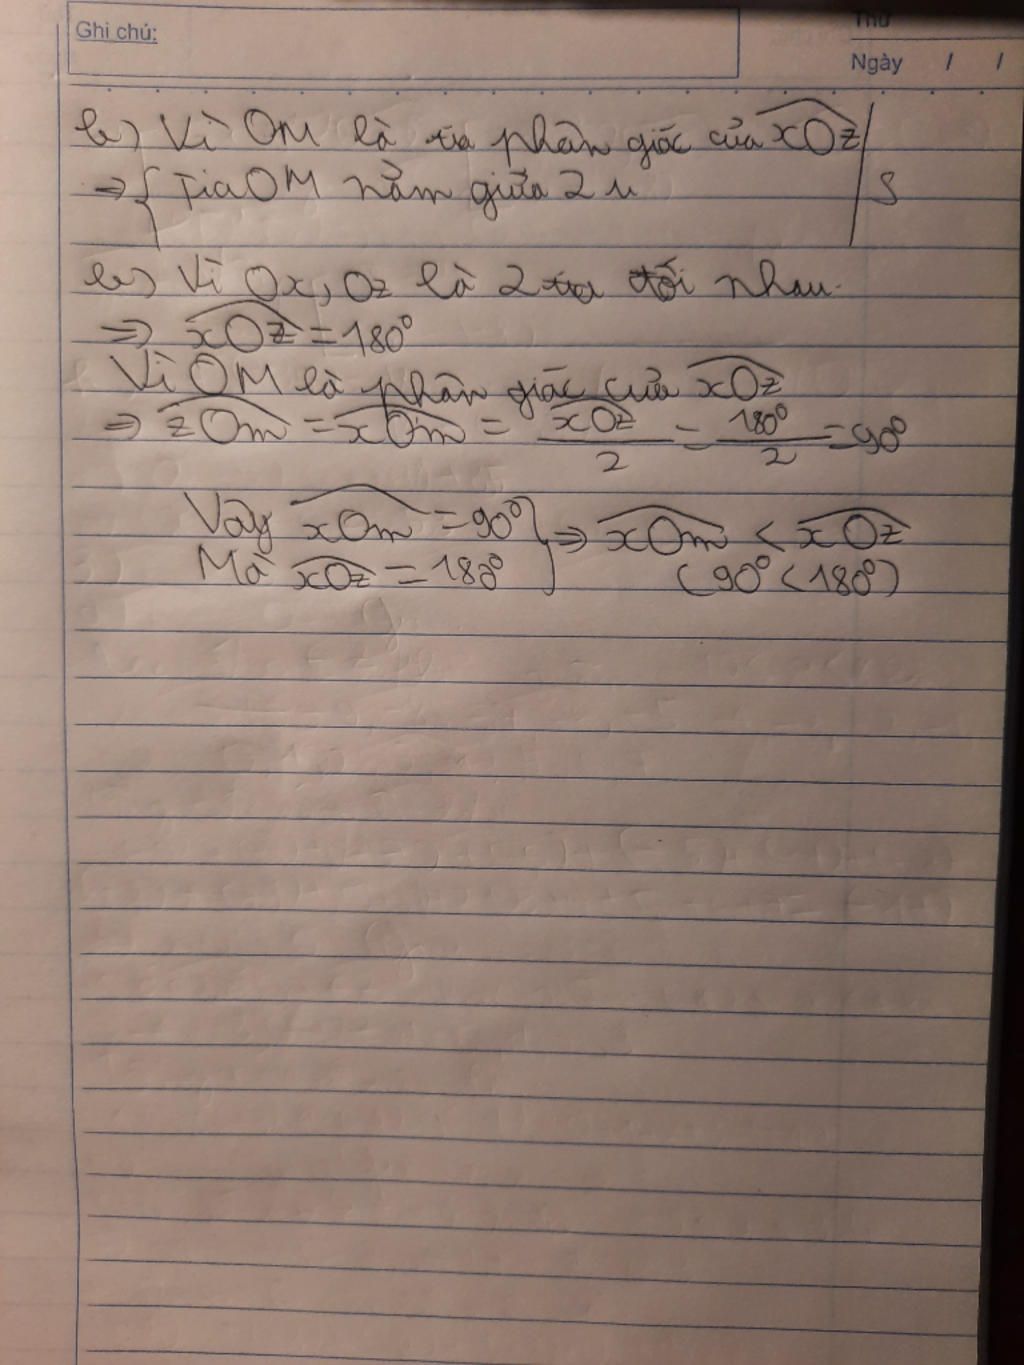 Ghi chú:
Thứ
Ngày / /
b) Vì OM là tia phân giác của xOz
=> { Tia OM nằm giữa 2 S
b) Vì Ox, Oz là 2 tia đối nhau.
=> xOz = 180°
Vì OM là phân giác của xOz
=> zOm = xOm = xOz/2 = 180°/2 = 90°
Vậy xOm = 90° } => xOm < xOz
Mà xOz = 180° (90° < 180°)